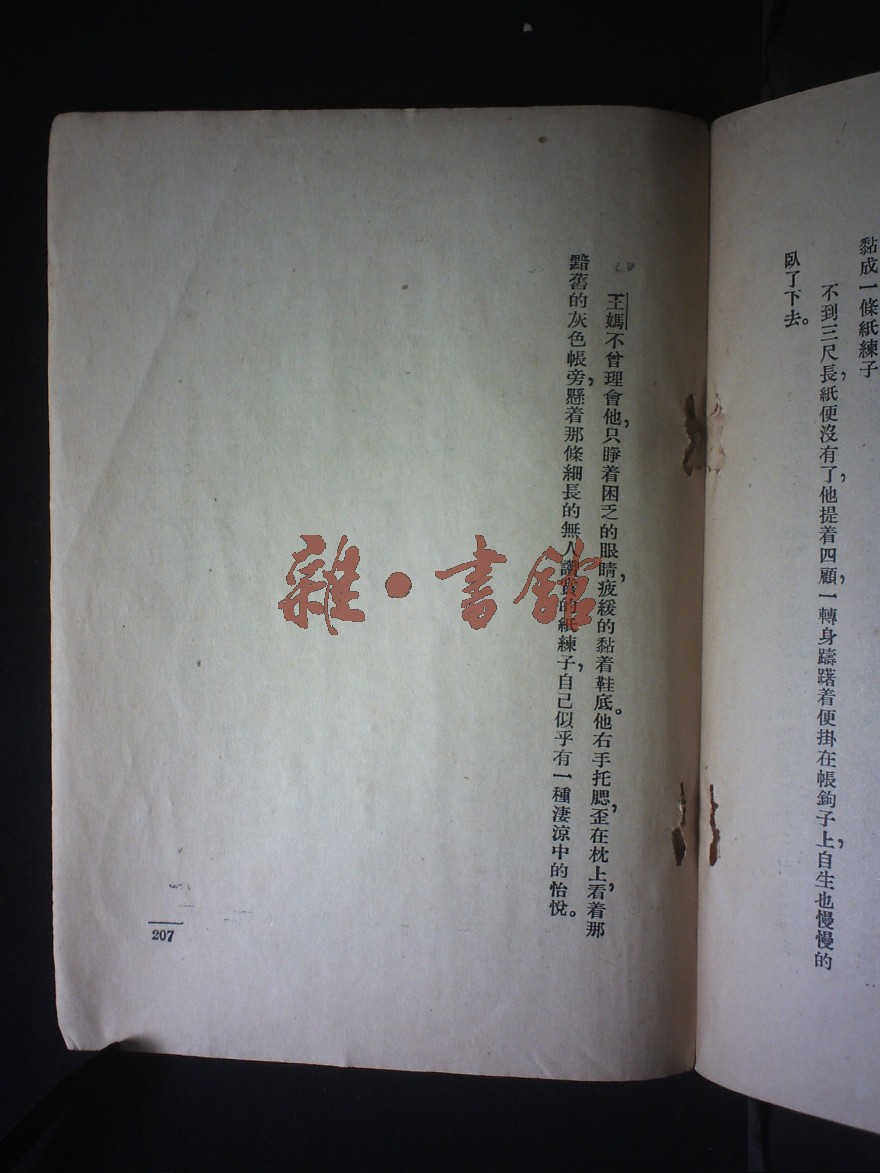 黏成一條紙練子
不到三尺長，紙便沒有了，他提着四顧，一轉身躊躇着便掛在帳鉤子上，自生也慢慢的
臥了下去。
王媽不曾理會他，只睜着困乏的眼睛，疲緩的黏着鞋底。他右手托腮，歪在枕上，看着那
黯舊的灰色帳旁，懸着那條細長的無人讚賞的紙練子，自己似乎有一種淒涼中的怡悅。
207
雜·書館